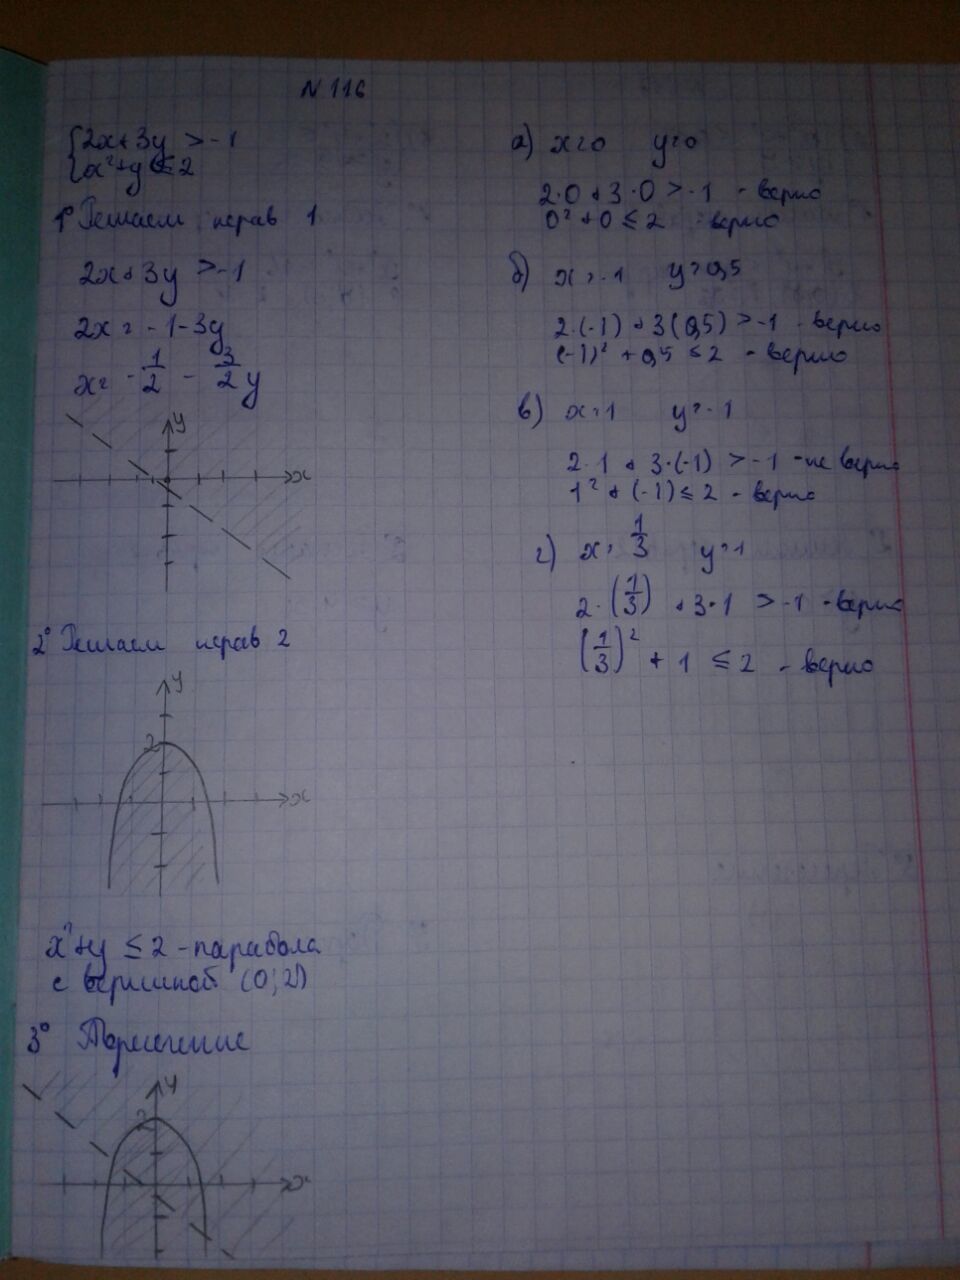 N 116
{2x + 3y > -1
{x² + y ≤ 2
1° Решаем нерав 1
2x + 3y > -1
2x = -1 - 3y
x = -1/2 - 3/2 y
y
x
2° Решаем нерав 2
y
2
x
x² + y ≤ 2 - парабола
с вершиной (0; 2)
3° Пересечение
y
2
x
а) x = 0 y = 0
2·0 + 3·0 > -1 - верно
0² + 0 ≤ 2 верно
б) x = -1 y = 0,5
2·(-1) + 3(0,5) > -1 - верно
(-1)² + 0,5 ≤ 2 - верно
в) x = 1 y = -1
2·1 + 3·(-1) > -1 - не верно
1² + (-1) ≤ 2 - верно
г) x = 1/3 y = 1
2·(1/3) + 3·1 > -1 - верно
(1/3)² + 1 ≤ 2 - верно